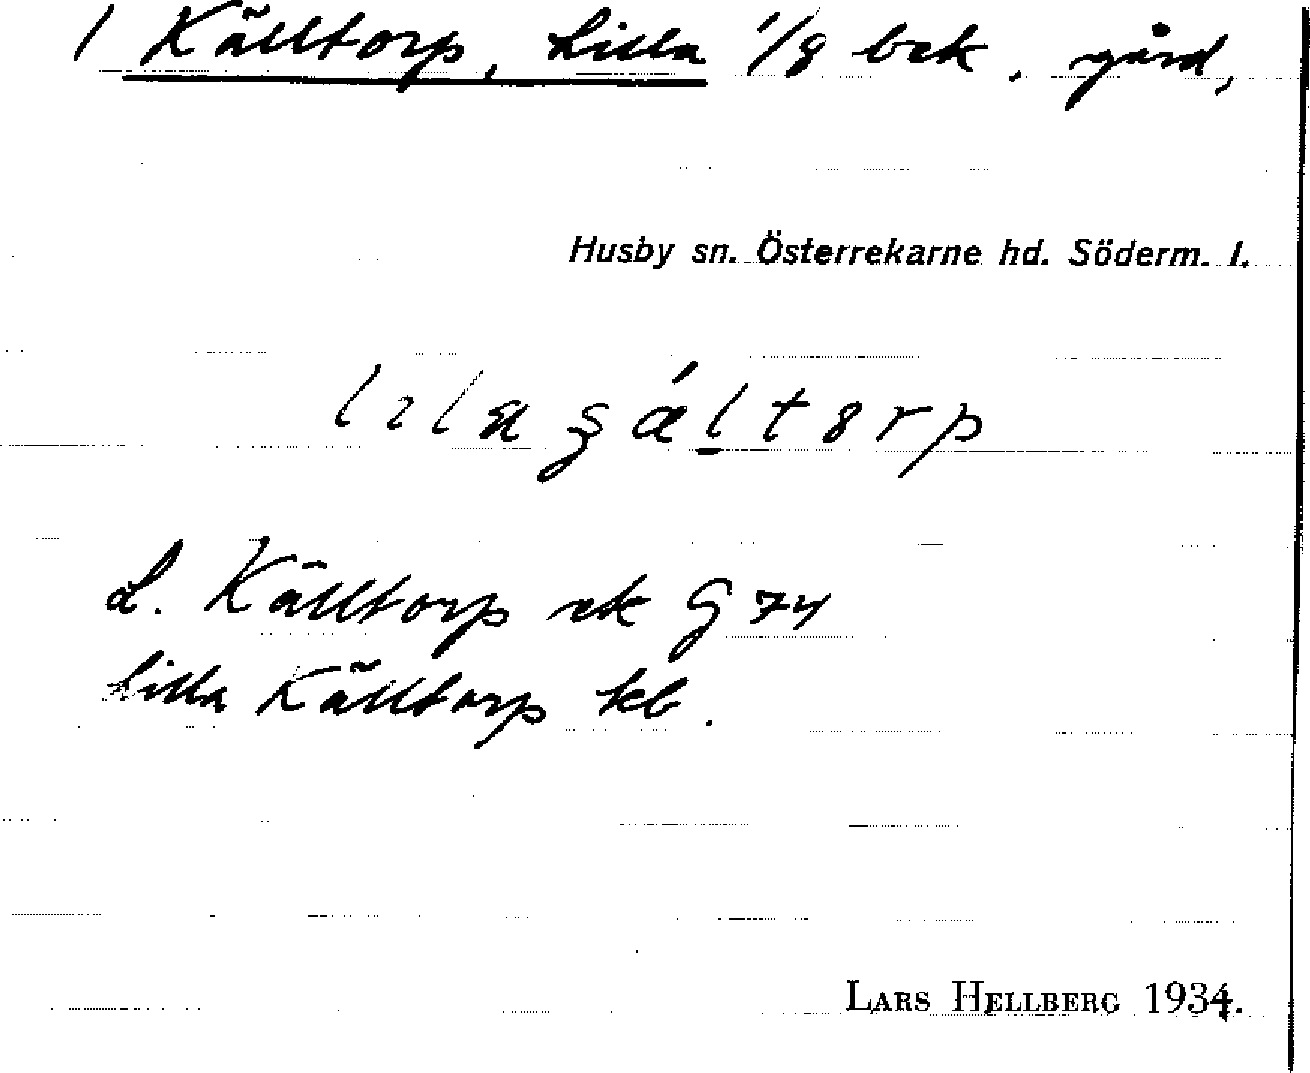 1 Källtorp, Lilla 1/8 bek. gård,
Husby sn. Österrekarne hd. Söderm. l.
L. Källtorp ek G 74
Lilla Källtorp kb.
LARS HELLBERG 1934.